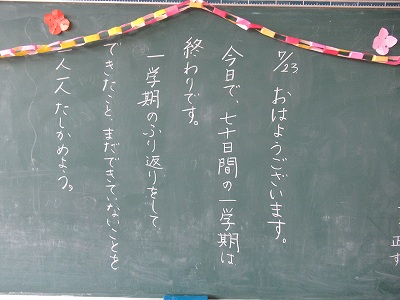 7/23 おはようございます。
今日で、七十日間の一学期は
終わりです。
一学期のふり返りをして、
できたこと、まだできていないことを
一人一人たしかめよう。